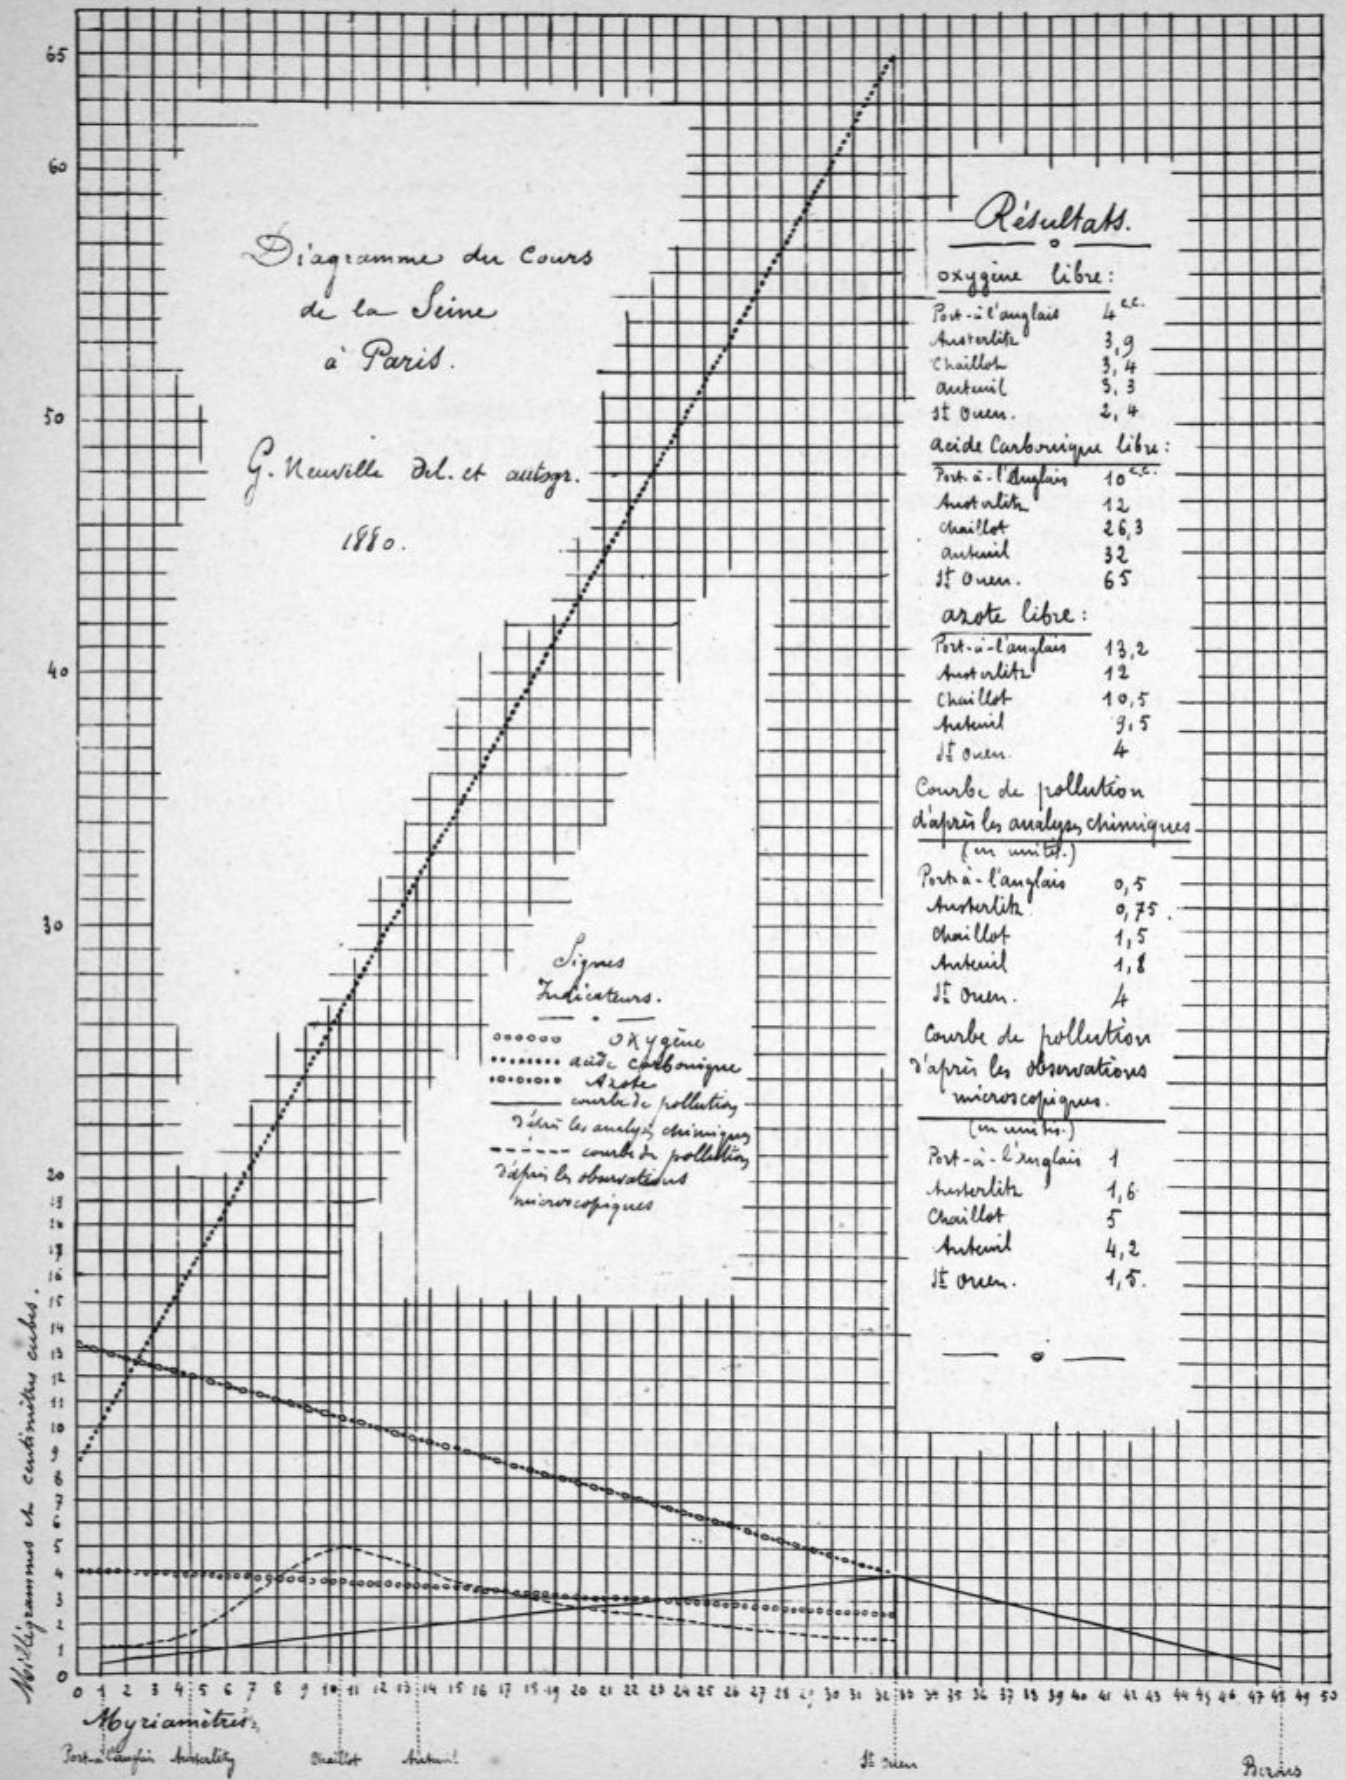 Diagramme du Cours
de la Seine
à Paris.
G. Neuville del. et autogr.
1880.
Signes
Indicateurs.
oxygène
acide carbonique
Azote
courbe de pollution
d'après les analyses chimiques
courbe de pollution
d'après les observations
microscopiques
Résultats.
oxygène libre:
Port-à-l'anglais 4 c.c.
Austerlitz 3,9
Chaillot 3,4
auteuil 3,3
St Ouen. 2,4
acide Carbonique libre:
Port-à-l'Anglais 10 c.c.
Austerlitz 12
Chaillot 26,3
auteuil 32
St Ouen. 65
azote libre:
Port-à-l'anglais 13,2
Austerlitz 12
Chaillot 10,5
Auteuil 9,5
St Ouen. 4
Courbe de pollution
d'après les analyses chimiques
(en unités.)
Port-à-l'anglais 0,5
Austerlitz 0,75.
Chaillot 1,5
Auteuil 1,8
St Ouen. 4
Courbe de pollution
d'après les observations
microscopiques.
(en unités.)
Port-à-l'Anglais 1
Austerlitz 1,6
Chaillot 5
Auteuil 4,2
St Ouen. 1,5.
Milligrammes et centimètres cubes.
65
60
50
40
30
20
19
18
17
16
15
14
13
12
11
10
9
8
7
6
5
4
3
2
1
0
0 1 2 3 4 5 6 7 8 9 10 11 12 13 14 15 16 17 18 19 20 21 22 23 24 25 26 27 28 29 30 31 32 33 34 35 36 37 38 39 40 41 42 43 44 45 46 47 48 49 50
Myriamètres.
Port-à-l'anglais Austerlitz Chaillot Auteuil St Ouen